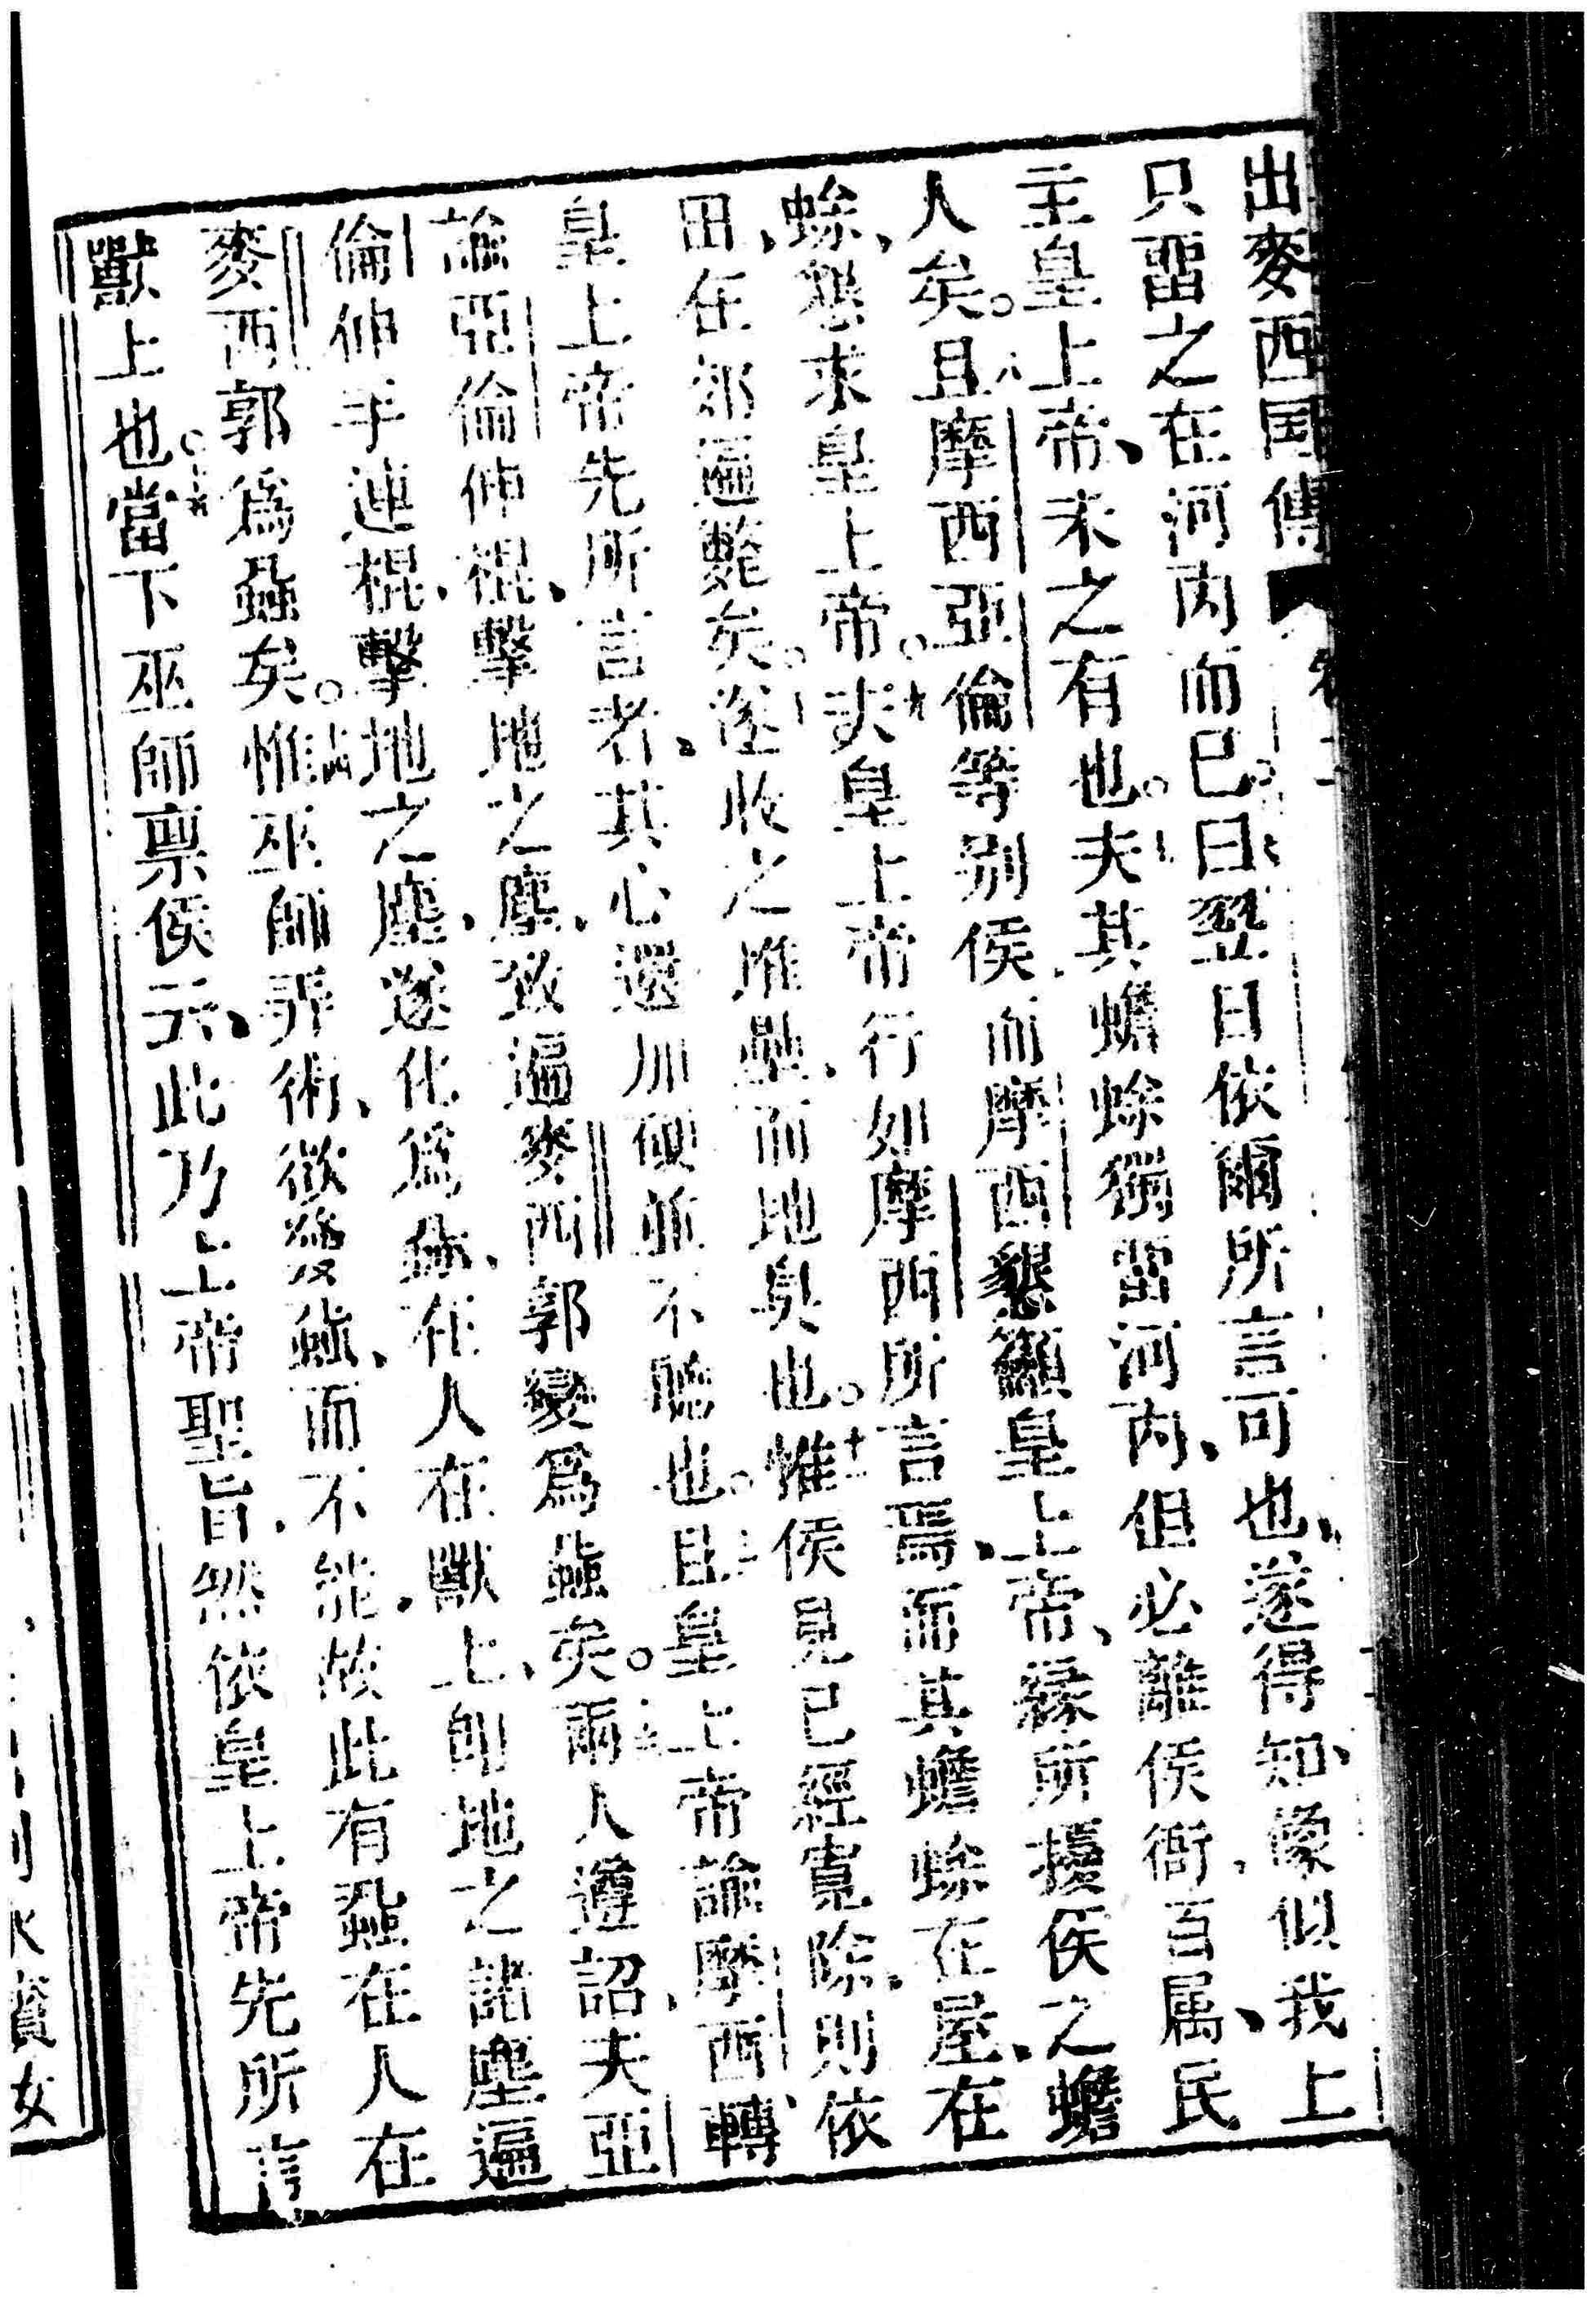 出麥西国傳
只畱之在河內而已。曰翌日依爾所言可也、遂得知、像似我上
主皇上帝、未之有也。夫其蟾蜍獨畱河內、但必離侯衙、百属民
人矣。且摩西亞倫等别侯、而摩西懇籲皇上帝、縁所擾侯之蟾
蜍、懇求皇上帝。夫皇上帝行如摩西所言焉、而其蟾蜍在屋、在
田、在郊遍斃矣。遂收之堆壘、而地臭也。惟侯見已經寬除、則依
皇上帝先所言者、其心還加硬並不聽也。且皇上帝諭摩西、轉
諭亞倫伸棍、擊地之塵、致遍麥西郭變爲蝨矣。兩人遵詔、夫亞
倫伸手連棍、擊地之塵、遂化爲蝨、在人在獸上、卽地之諸塵遍
麥西郭爲蝨矣。惟巫師弄術、欲發蝨、而不能、故此有蝨在人在
獸上也。當下巫師禀侯云、此乃上帝聖旨、然依皇上帝先所言